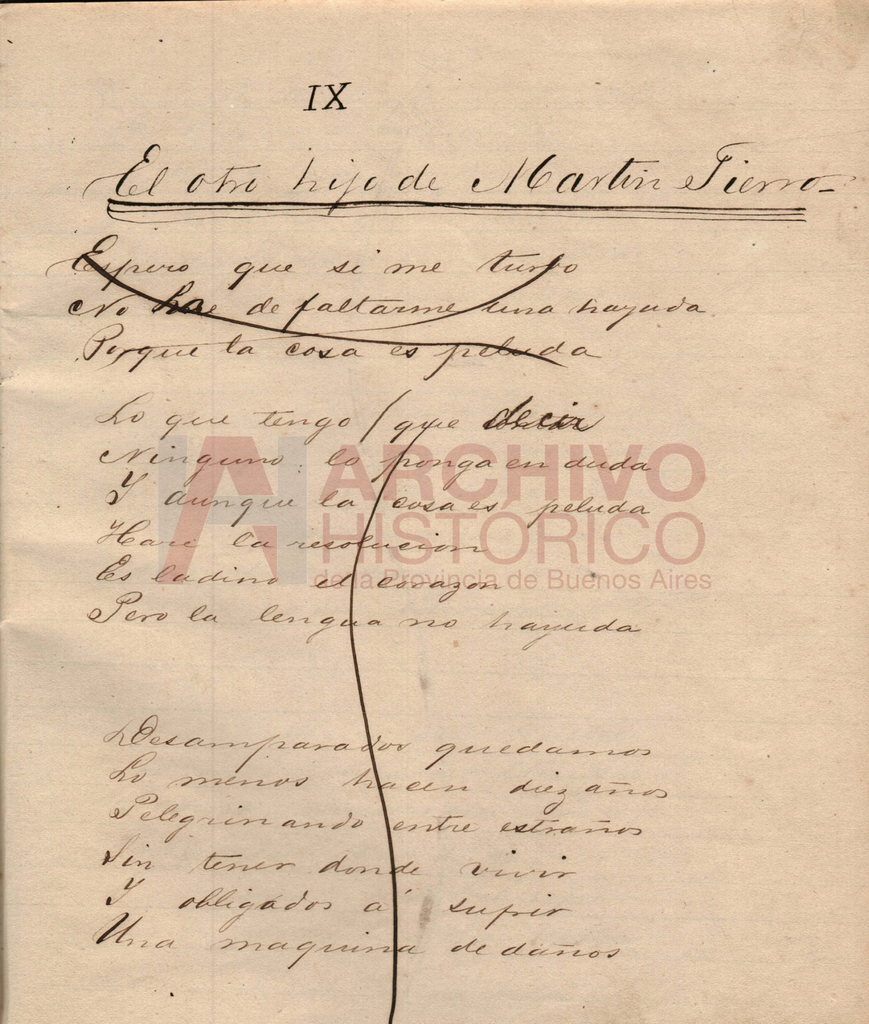 IX
El otro hijo de Martin Fierro
Espero que si me turbo
No de faltarme una hayuda
Porque la cosa es peluda
Lo que tengo que decir
Ninguno lo ponga en duda
Y aunque la cosa es peluda
Haré la resolucion
Es ladino el corazon
Pero la lengua no hayuda
ARCHIVO
HISTÓRICO
de la Provincia de Buenos Aires
Desamparados quedamos
Lo menos hacen diez años
Pelegrinando entre estraños
Sin tener donde vivir
Y obligados á sufrir
Una maquina de daños